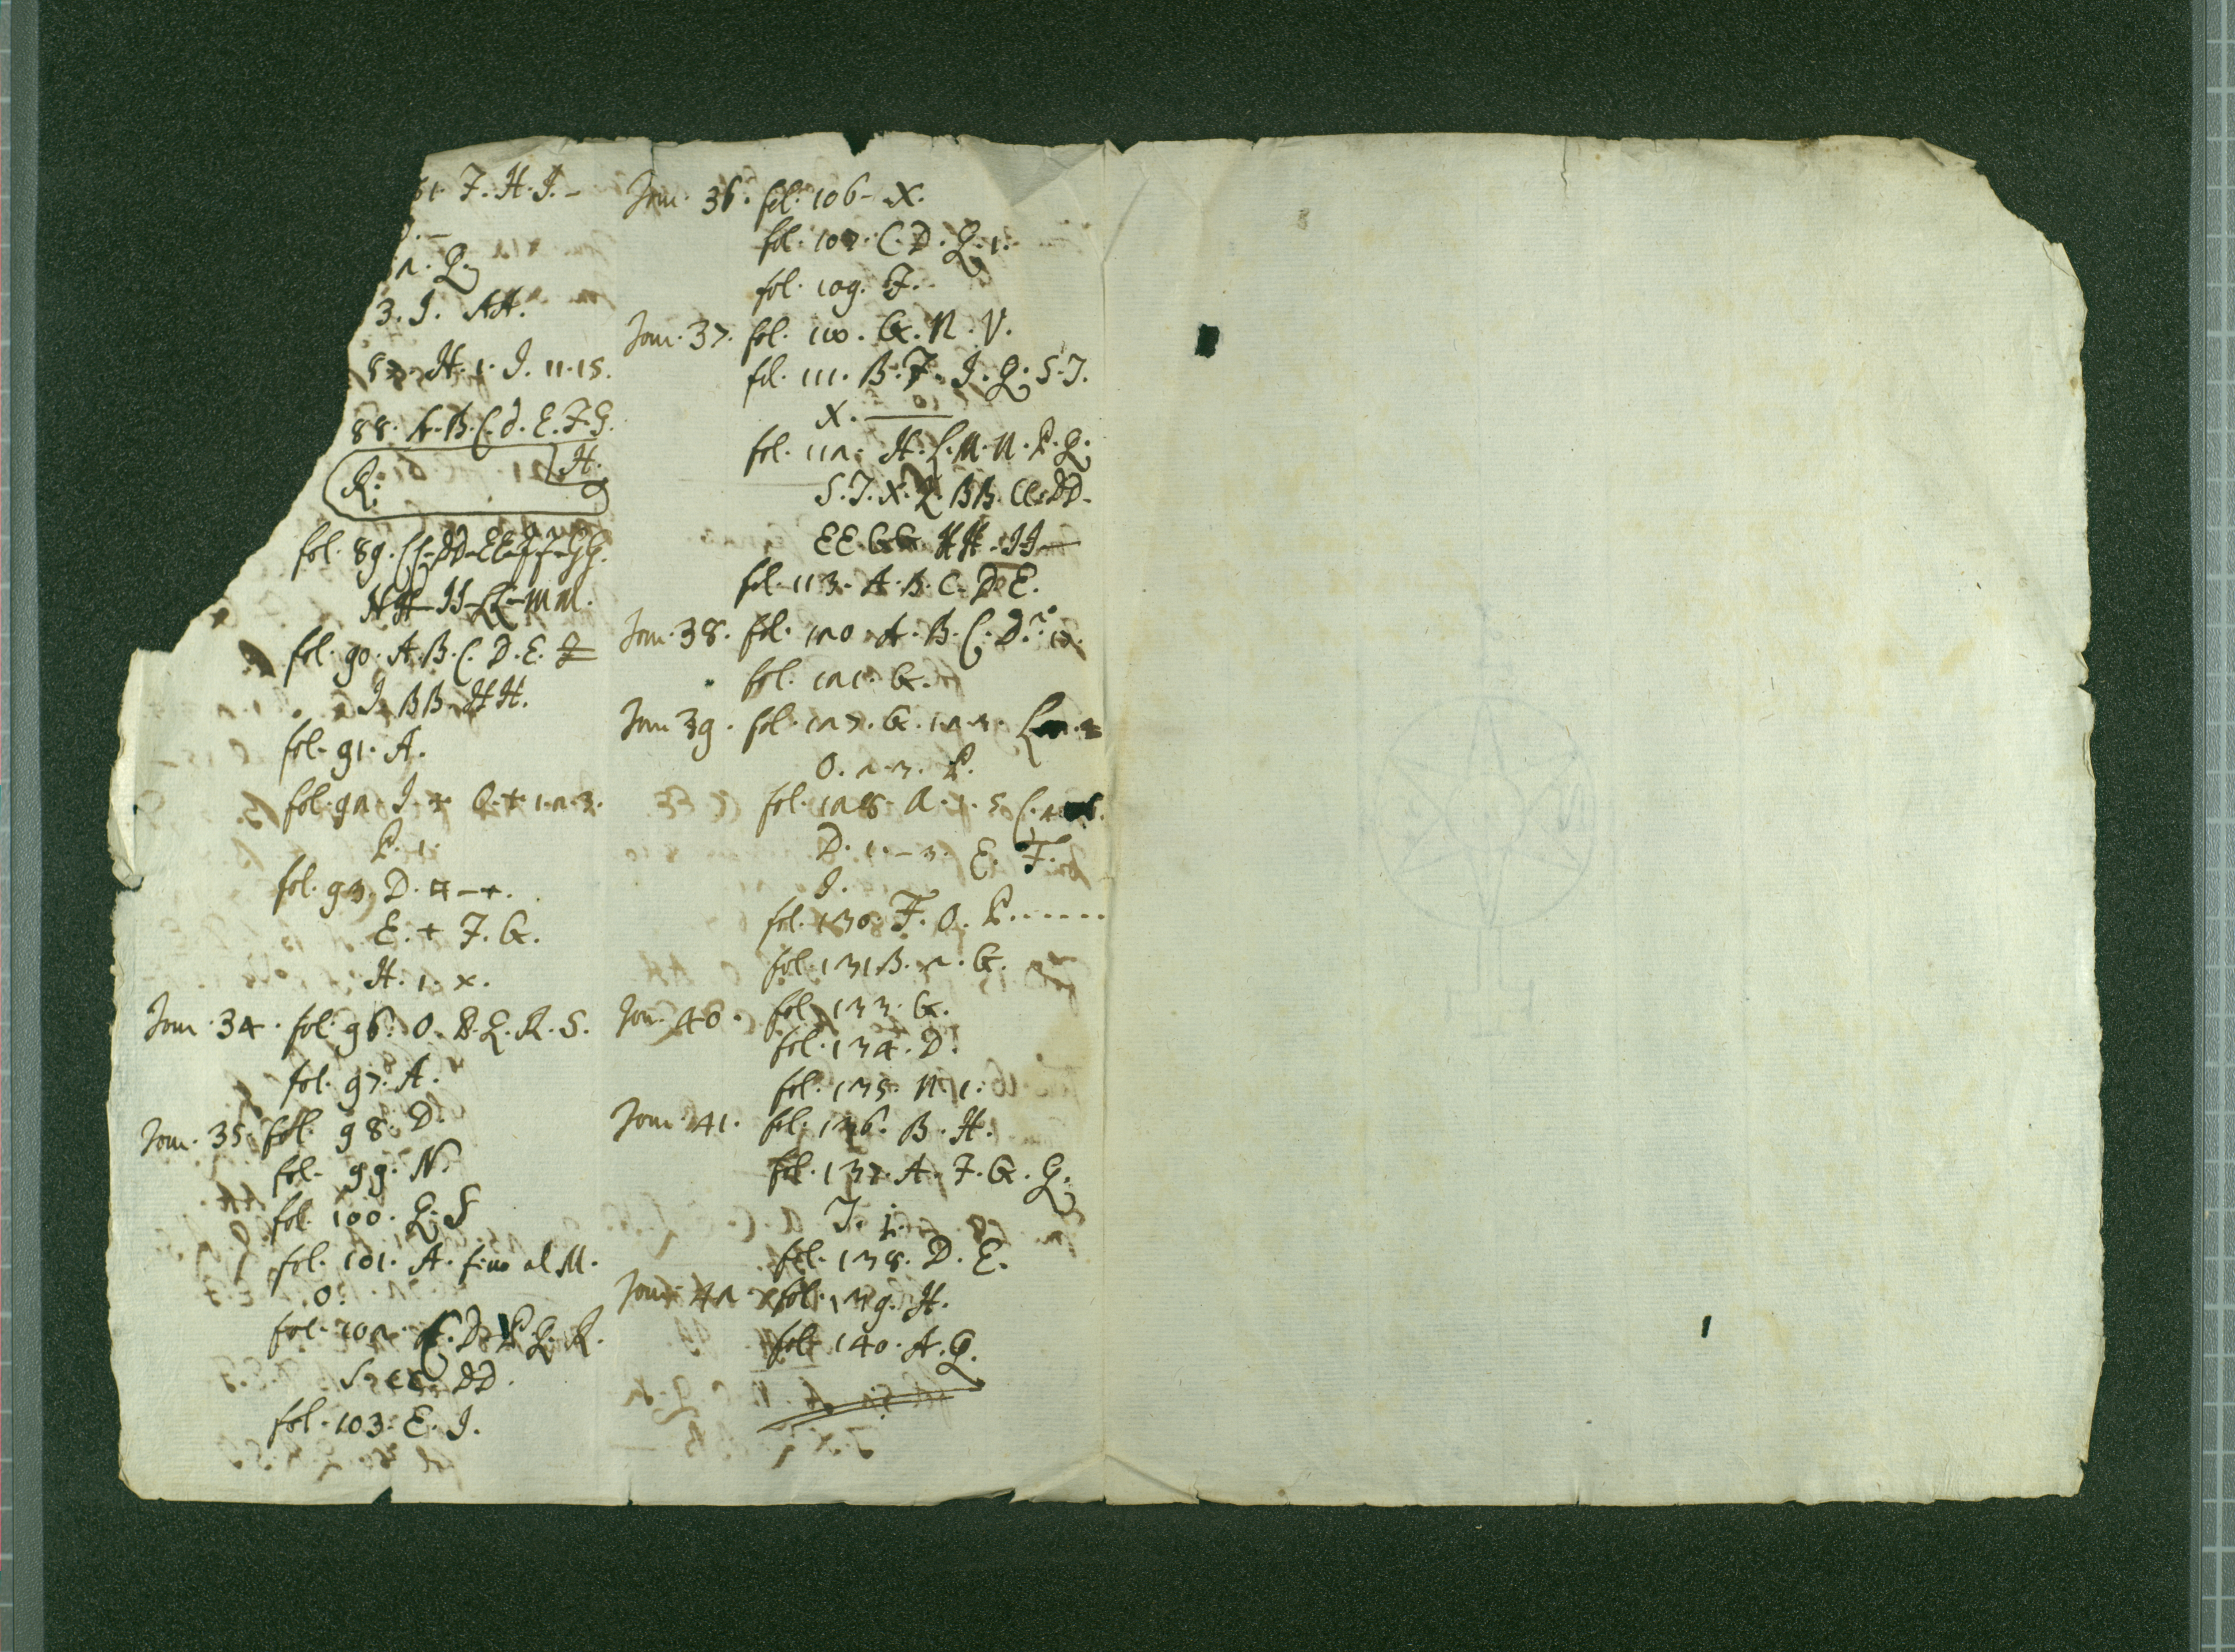 61. F. H. I. –
3. I. AA.
87. H. 1. I. 11. 15.
88. A. B. C. d. E. F. G.
R: H.
fol. 89. CC. DD. EE. FF. GG.
HH. II. LL. MM.
fol. 90. A. B. C. D. E. F
I. BB. HH.
fol. 91. A.
fol. 92. I. O. + 1. 2. 3.
P. 1.
fol. 93. D. – +.
E. + F. G.
H. 1. x.
Tom. 34. fol. 96. O. P. Q. R. S.
fol. 97. A.
Tom. 35. fol. 98. D.
fol. 99. N.
fol. 100. Q. S
fol. 101. A. fino al M.
O.
fol. 102. C. D. P. Q. R.
S. CC. DD.
fol. 103. E. I.
Tom. 36. fol. 106 – X.
fol. 107. C. D. Q. 1.
fol. 109. F.
Tom. 37. fol. 110. G. N. V.
fol. 111. B. F. I. Q. S. T.
X.
fol. 112. H. L. M. N. P. Q.
S. T. X. Z. BB. CC. DD.
EE. GG. HH. II –
fol. 113. A. B. C. D. E.
Tom. 38. fol. 120. A. B. C. D.
fol. 121. G.
Tom. 39. fol. 127. G. 1. 2. 3.
O. 2. 3. P.
fol. 128. A. 1. 5 C.
D. 1. – 3. E. F.
I.
fol. 130. F. O. P. . . . . . .
fol. 131 B. 2. G.
Tom. 40. fol. 133. G.
fol. 134. D.
fol. 135. N. 1.
Tom. 41. fol. 136. B. H.
fol. 137. A. F. G. Q.
T. 1.
fol. 138. D. E.
Tom. 42. fol. 139. H.
fol. 140. A. Q.